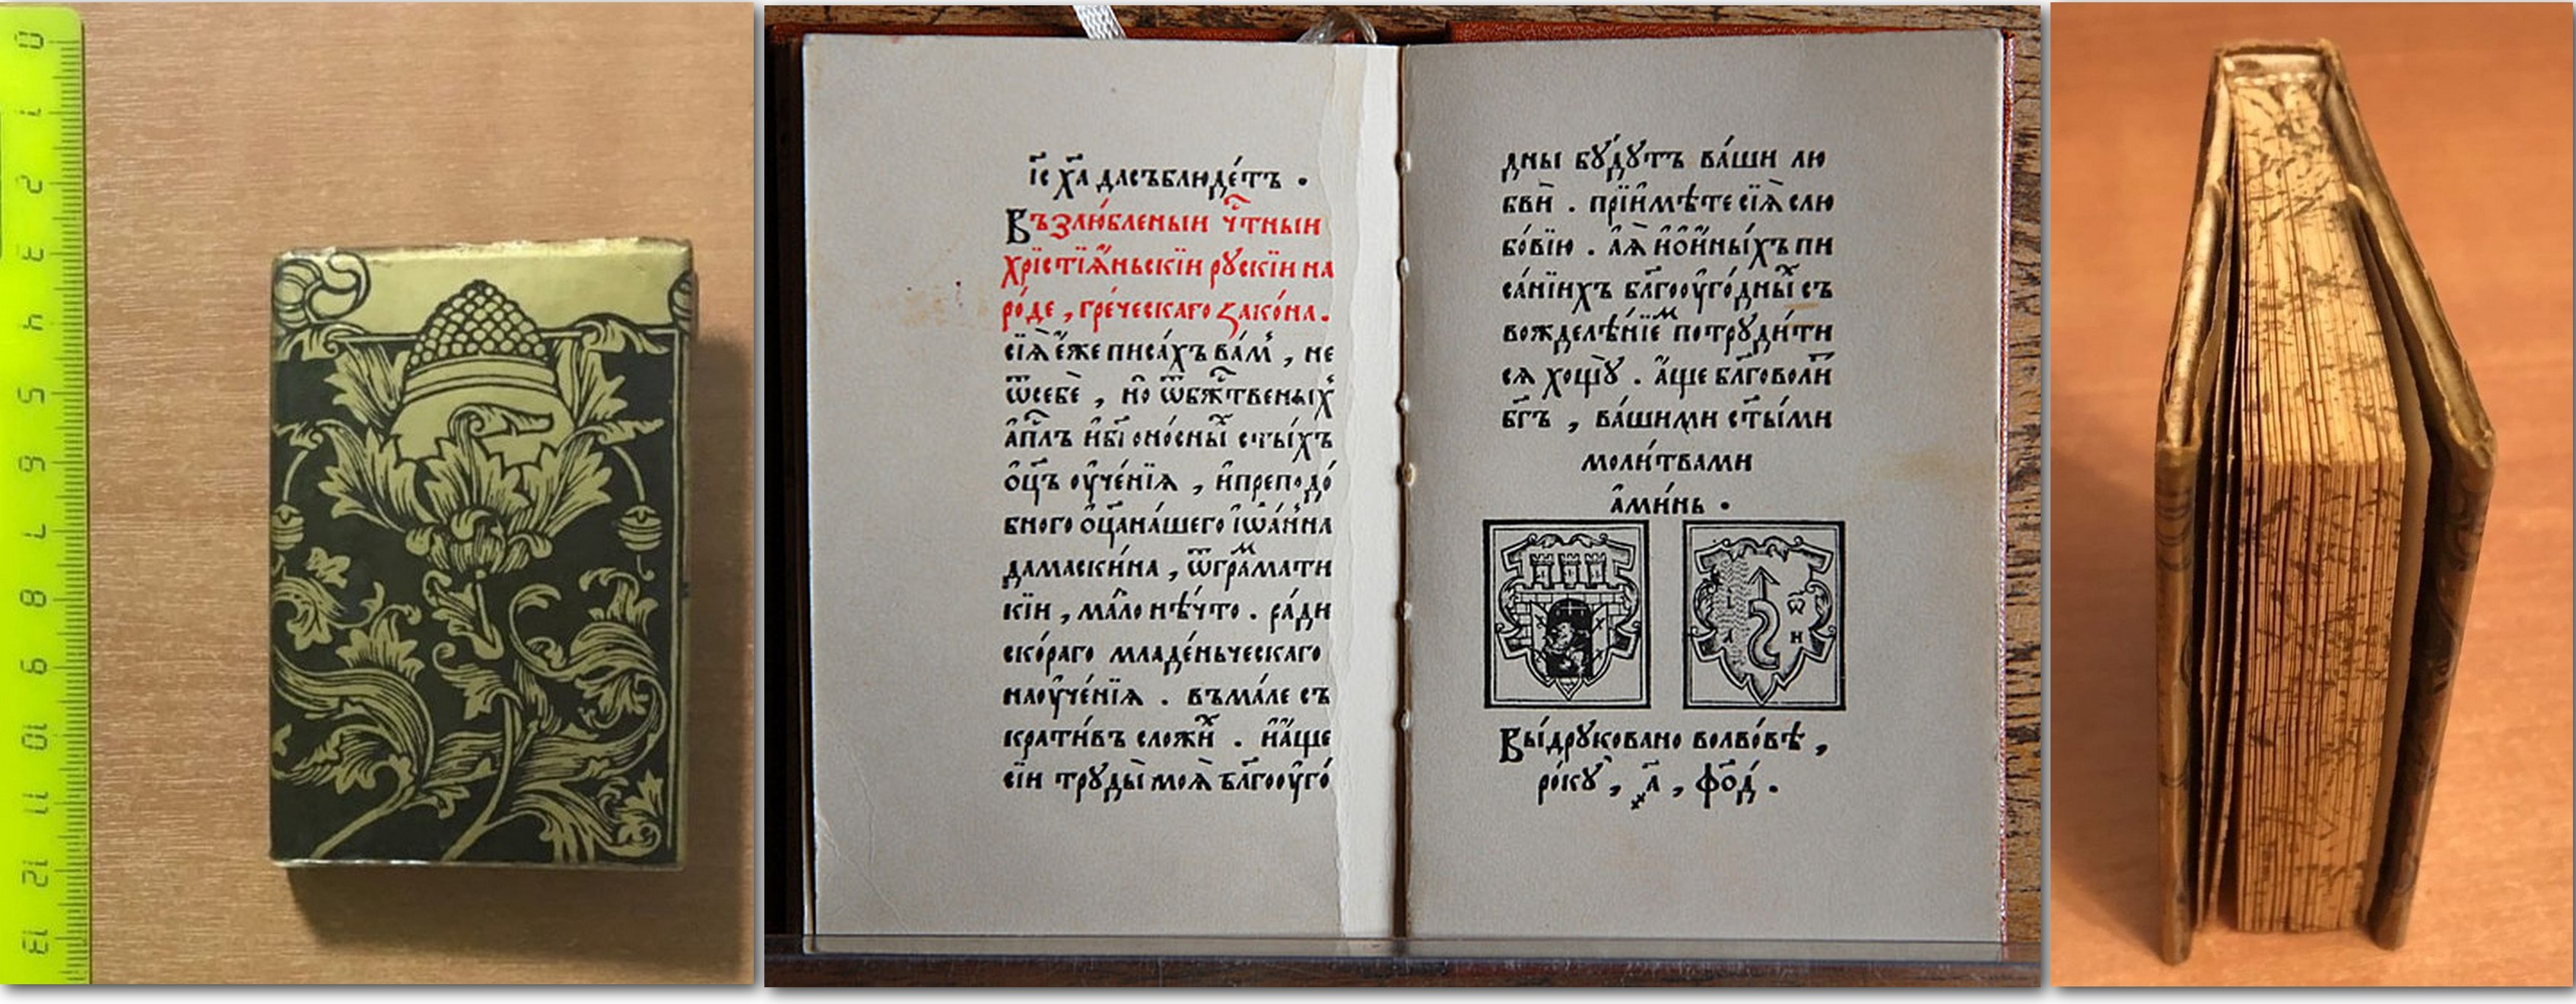 0 1 2 3 4 5 6 7 8 9 10 11 12 13
і҃с х҃а дасъблюде́тъ .
Възлю́бленыи чⷭ҇тныи
хрїстїѧ́ньскїи рꙋскїи на
ро́де , гре́ческаго зако́на .
сїѧ̀ є҆́же писа́хъ ва́мъ , не
ѿсебѐ , но ѿбжⷭ҇твеныхъ
а҆пⷭ҇лъ и҆б҃гоно́сныⷯ ст҃ы́хъ
ѻ҆ц҃ъ ᲂу҆че́нїѧ , и҆препⷪ҇до́
бного ѻ҆ц҃ана́шего і҆ѡа́нна
дамаски́на , ѿгра́маⷨти
кїи , ма́ло нѣ́что . ра́ди
ско́раго младе́ньческаго
наᲂу҆че́нїѧ . въма́ле съ
крати́въ сложи́ⷯ . и҆а҆́ще
сїи трꙋды̀ моѧ̀ бл҃гоᲂуго́
дны бꙋ́дꙋтъ ва́ши лю
бвѝ . прїи҆мѣ́те сїѧ̀ слю
бо́вїю . а҆ѧ҆̀ и҆ѻ҆и҆ны́хъ пи
са́нїихъ бл҃гоᲂуго́дныⷯ съ
вожделѣ́нїеⷨ потрꙋди́ти
сѧ хощꙋ̀ . а҆́ще бл҃говоли́тъ
бг҃ъ , ва́шими ст҃ы́ми
моли́твами
а҆ми́нь .
Вы́дрꙋковано волво́вѣ ,
ро́кꙋ , ҂а҃ , фо҃д .